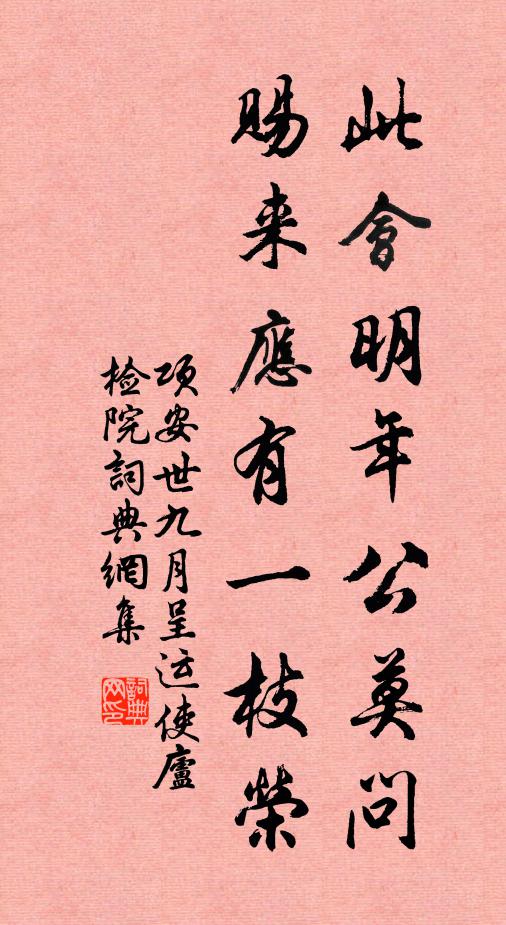 此會明年公莫問
賜来應有一枝榮
項安世九月呈运使廬
检院詞典網集
詞典网印